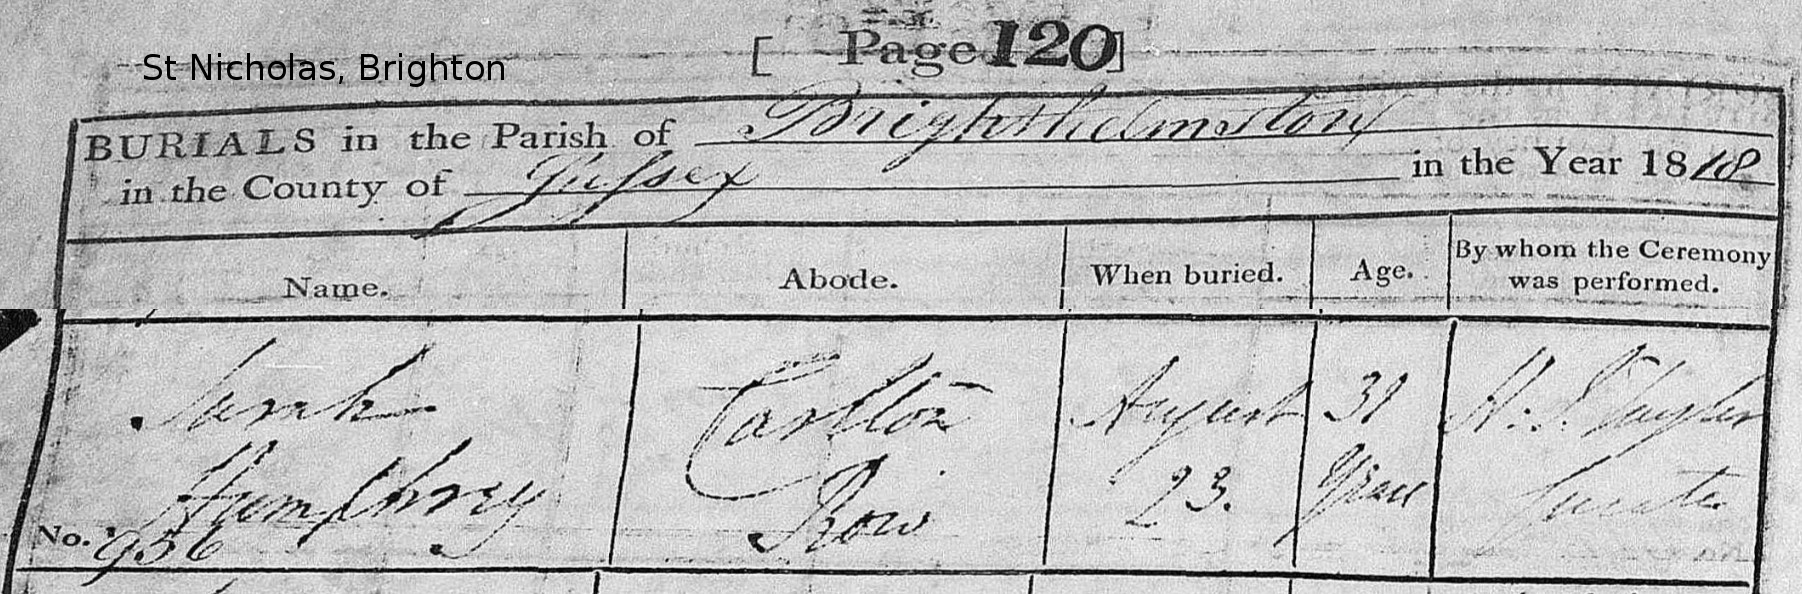 [ Page 120]
St Nicholas, Brighton
BURIALS in the Parish of Brighthelmston
in the County of Sussex in the Year 1818
Name. Abode. When buried. Age. By whom the Ceremony was performed.
Sarah Carlton August 31 H. J. Taylor
Humphrey Row 23. Years Curate
No. 956